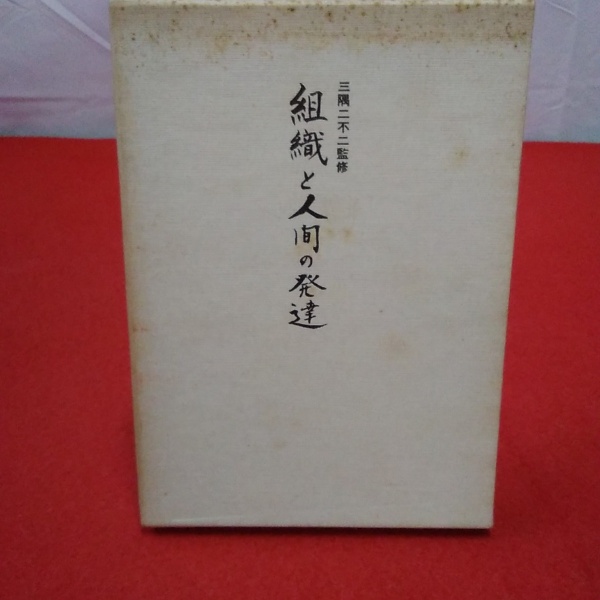 三隅二不二監修
組織と人间の発達